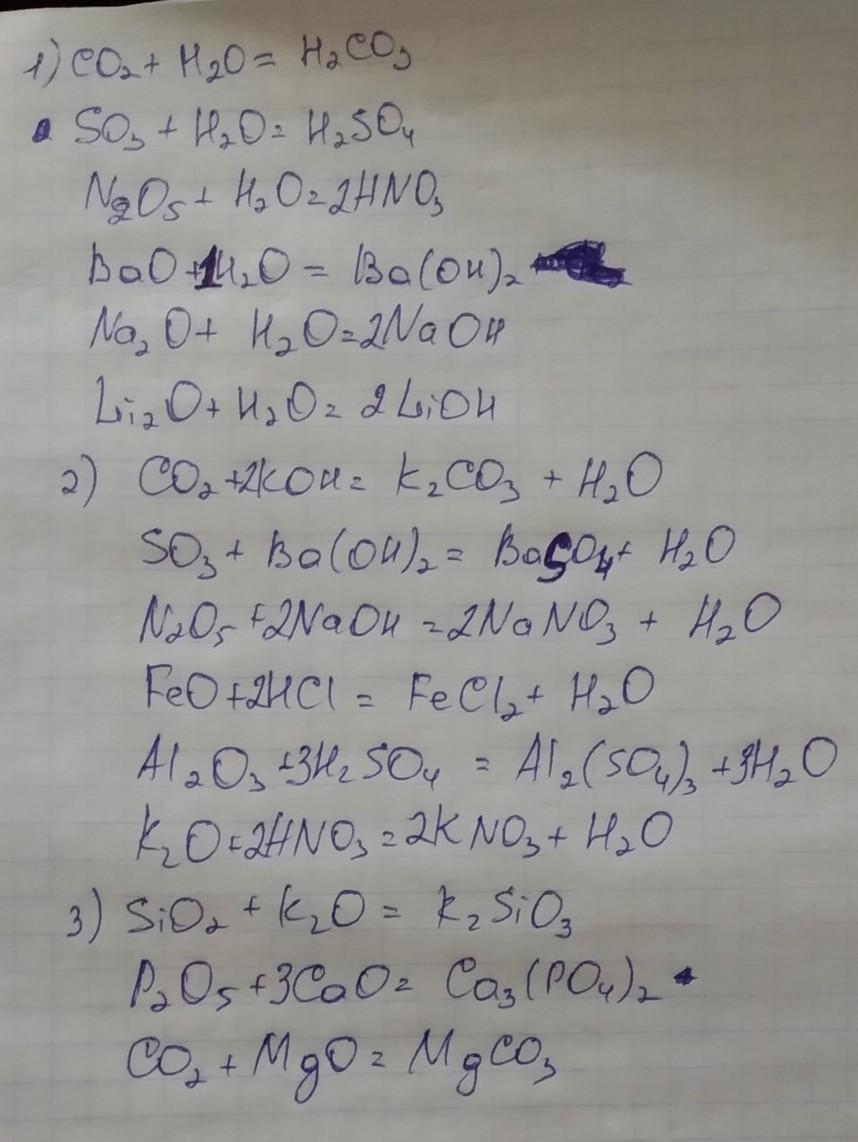 1) CO₂ + H₂O = H₂CO₃
SO₃ + H₂O = H₂SO₄
N₂O₅ + H₂O = 2HNO₃
BaO + 1H₂O = Ba(OH)₂
Na₂O + H₂O = 2NaOH
Li₂O + H₂O = 2LiOH
2) CO₂ + 2KOH = K₂CO₃ + H₂O
SO₃ + Ba(OH)₂ = BaSO₄ + H₂O
N₂O₅ + 2NaOH = 2NaNO₃ + H₂O
FeO + 2HCl = FeCl₂ + H₂O
Al₂O₃ + 3H₂SO₄ = Al₂(SO₄)₃ + 3H₂O
K₂O + 2HNO₃ = 2KNO₃ + H₂O
3) SiO₂ + K₂O = K₂SiO₃
P₂O₅ + 3CaO = Ca₃(PO₄)₂
CO₂ + MgO = MgCO₃